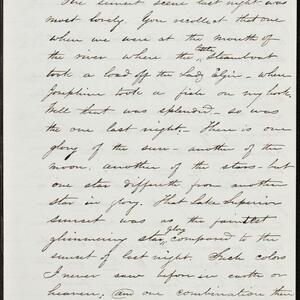 The sunset scene last night was
most lovely. You recollect that one
when we were at the mouth of
the river where the little Steamboat
took a load off the Lady Elgin - when
Josephine took a fish on my hook.
Well that was splendid - so was
the one last night - There is one
glory of the sun - another of the
moon, another of the stars - but
one star differeth from another
star in glory. That Lake Superior
sunset was as the faintest
glimmering star glory compared to the
sunset of last night. Such colors
I never saw before in earth or
heaven; and one combination then